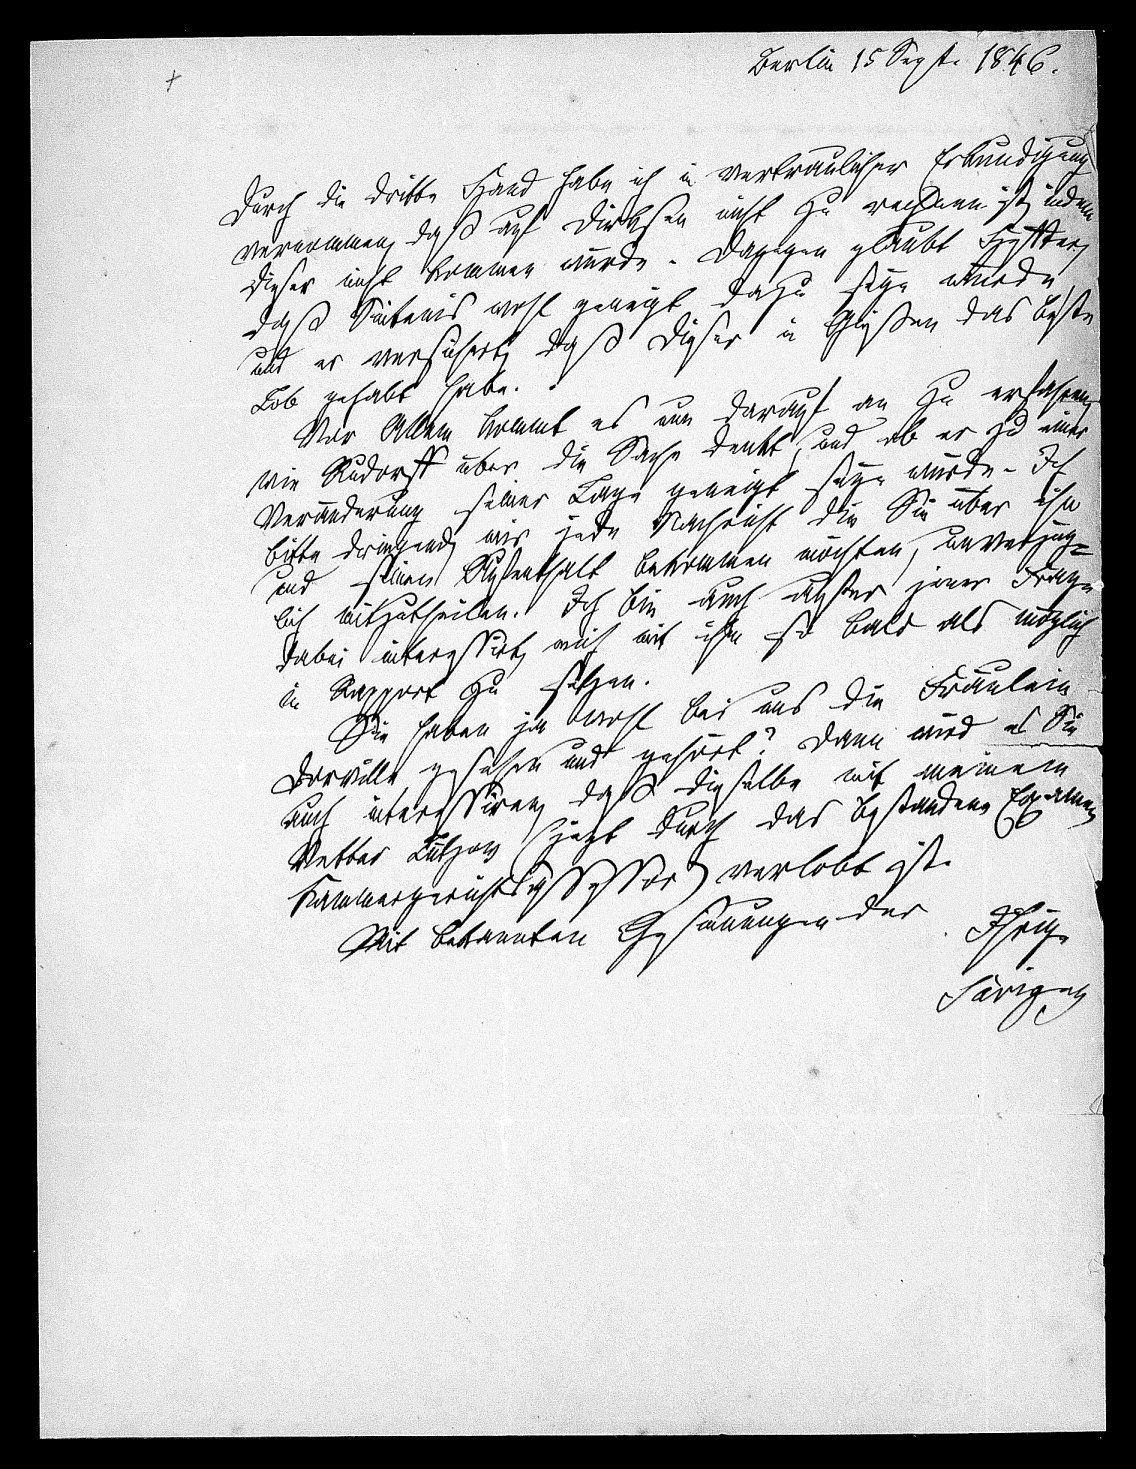 Berlin 15 Sept. 1846.
Durch die dritte Hand habe ich in vertraulicher Erkundigung
vernommen, daß auf Dirksen nicht zu rechnen ist, indem
dieser nicht kommen würde. Dagegen glaubt Heffter,
daß Sintenis wohl geneigt dazu seyn würde,
und er versichert, daß dieser in Gießen das beste
Lob gehabt habe.
Vor Allem kommt es nun darauf an zu erfahren,
wie Rudorff über die Sache denkt, und ob er zu einer
Veränderung seiner Lage geneigt seyn würde. Ich
bitte dringend, mir jede Nachricht die Sie über ihn
und seinen Aufenthalt bekommen möchten, unverzüg=
lich mitzutheilen. Ich bin auch außer jener Frage
dabei interessirt, mich mit ihm so bald als möglich
in Rapport zu setzen.
Sie haben ja wohl bei uns die Fräulein
Dorville gesehen und gehört? Dann wird es Sie
auch interessiren, daß dieselbe mit meinem
Vetter Lützow (jetzt durch das bestandene Examen
Kammergerichtsassessor) verlobt ist.
Mit bekannten Gesinnungen der
Ihrige
Savigny